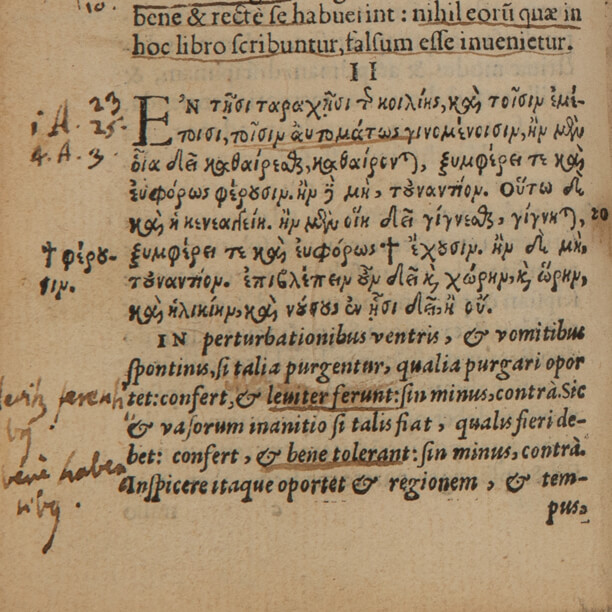 bene & rectè se habuerint : nihil eorũ quæ in
hoc libro scribuntur, falsum esse inuenietur.
II
ἘΝ τῇσι ταραχῇσι τ͂ κοιλίης, καὶ τοῖσιν ἐμέ-
τοισι, τοῖσιν αὐτομάτως γινομένοισιν, ἢν μὲν
οἷα δεῖ καθαίρεσθαι, καθαίρονται, ξυμφέρει τε καὶ
εὐφόρως φέρουσιν. ἢν ἢ μὴ, τοὐναντίον. Οὕτω δὲ
καὶ ἡ κενεαγγείη. ἢν μὲν οἵη δεῖ γίγνεσθαι, γίγνηται,
20
ξυμφέρει τε καὶ εὐφόρως † ἔχουσιν. ἢν δὲ μὴ,
τοὐναντίον. ἐπιβλέπειν οὖν δεῖ κỳ χώρην, κỳ ὥρην,
καὶ ἡλικίην, καὶ νούσους ἐν ᾗσι δεῖ, ἢ οὔ.
23
1. A. 25.
4. A. 3
† φέρου-
σιν.
IN perturbationibus ventris, & vomitibus
spontinus, si talia purgentur, qualia purgari opor
tet: confert, & leuiter ferunt: sin minus, contrà. Sic
& vasorum inanitio si talis fiat, qualis fieri de-
bet: confert, & bene tolerant: sin minus, contrà.
Inspicere itaque oportet & regionem, & tem-
pus,
bene haben
tibq.